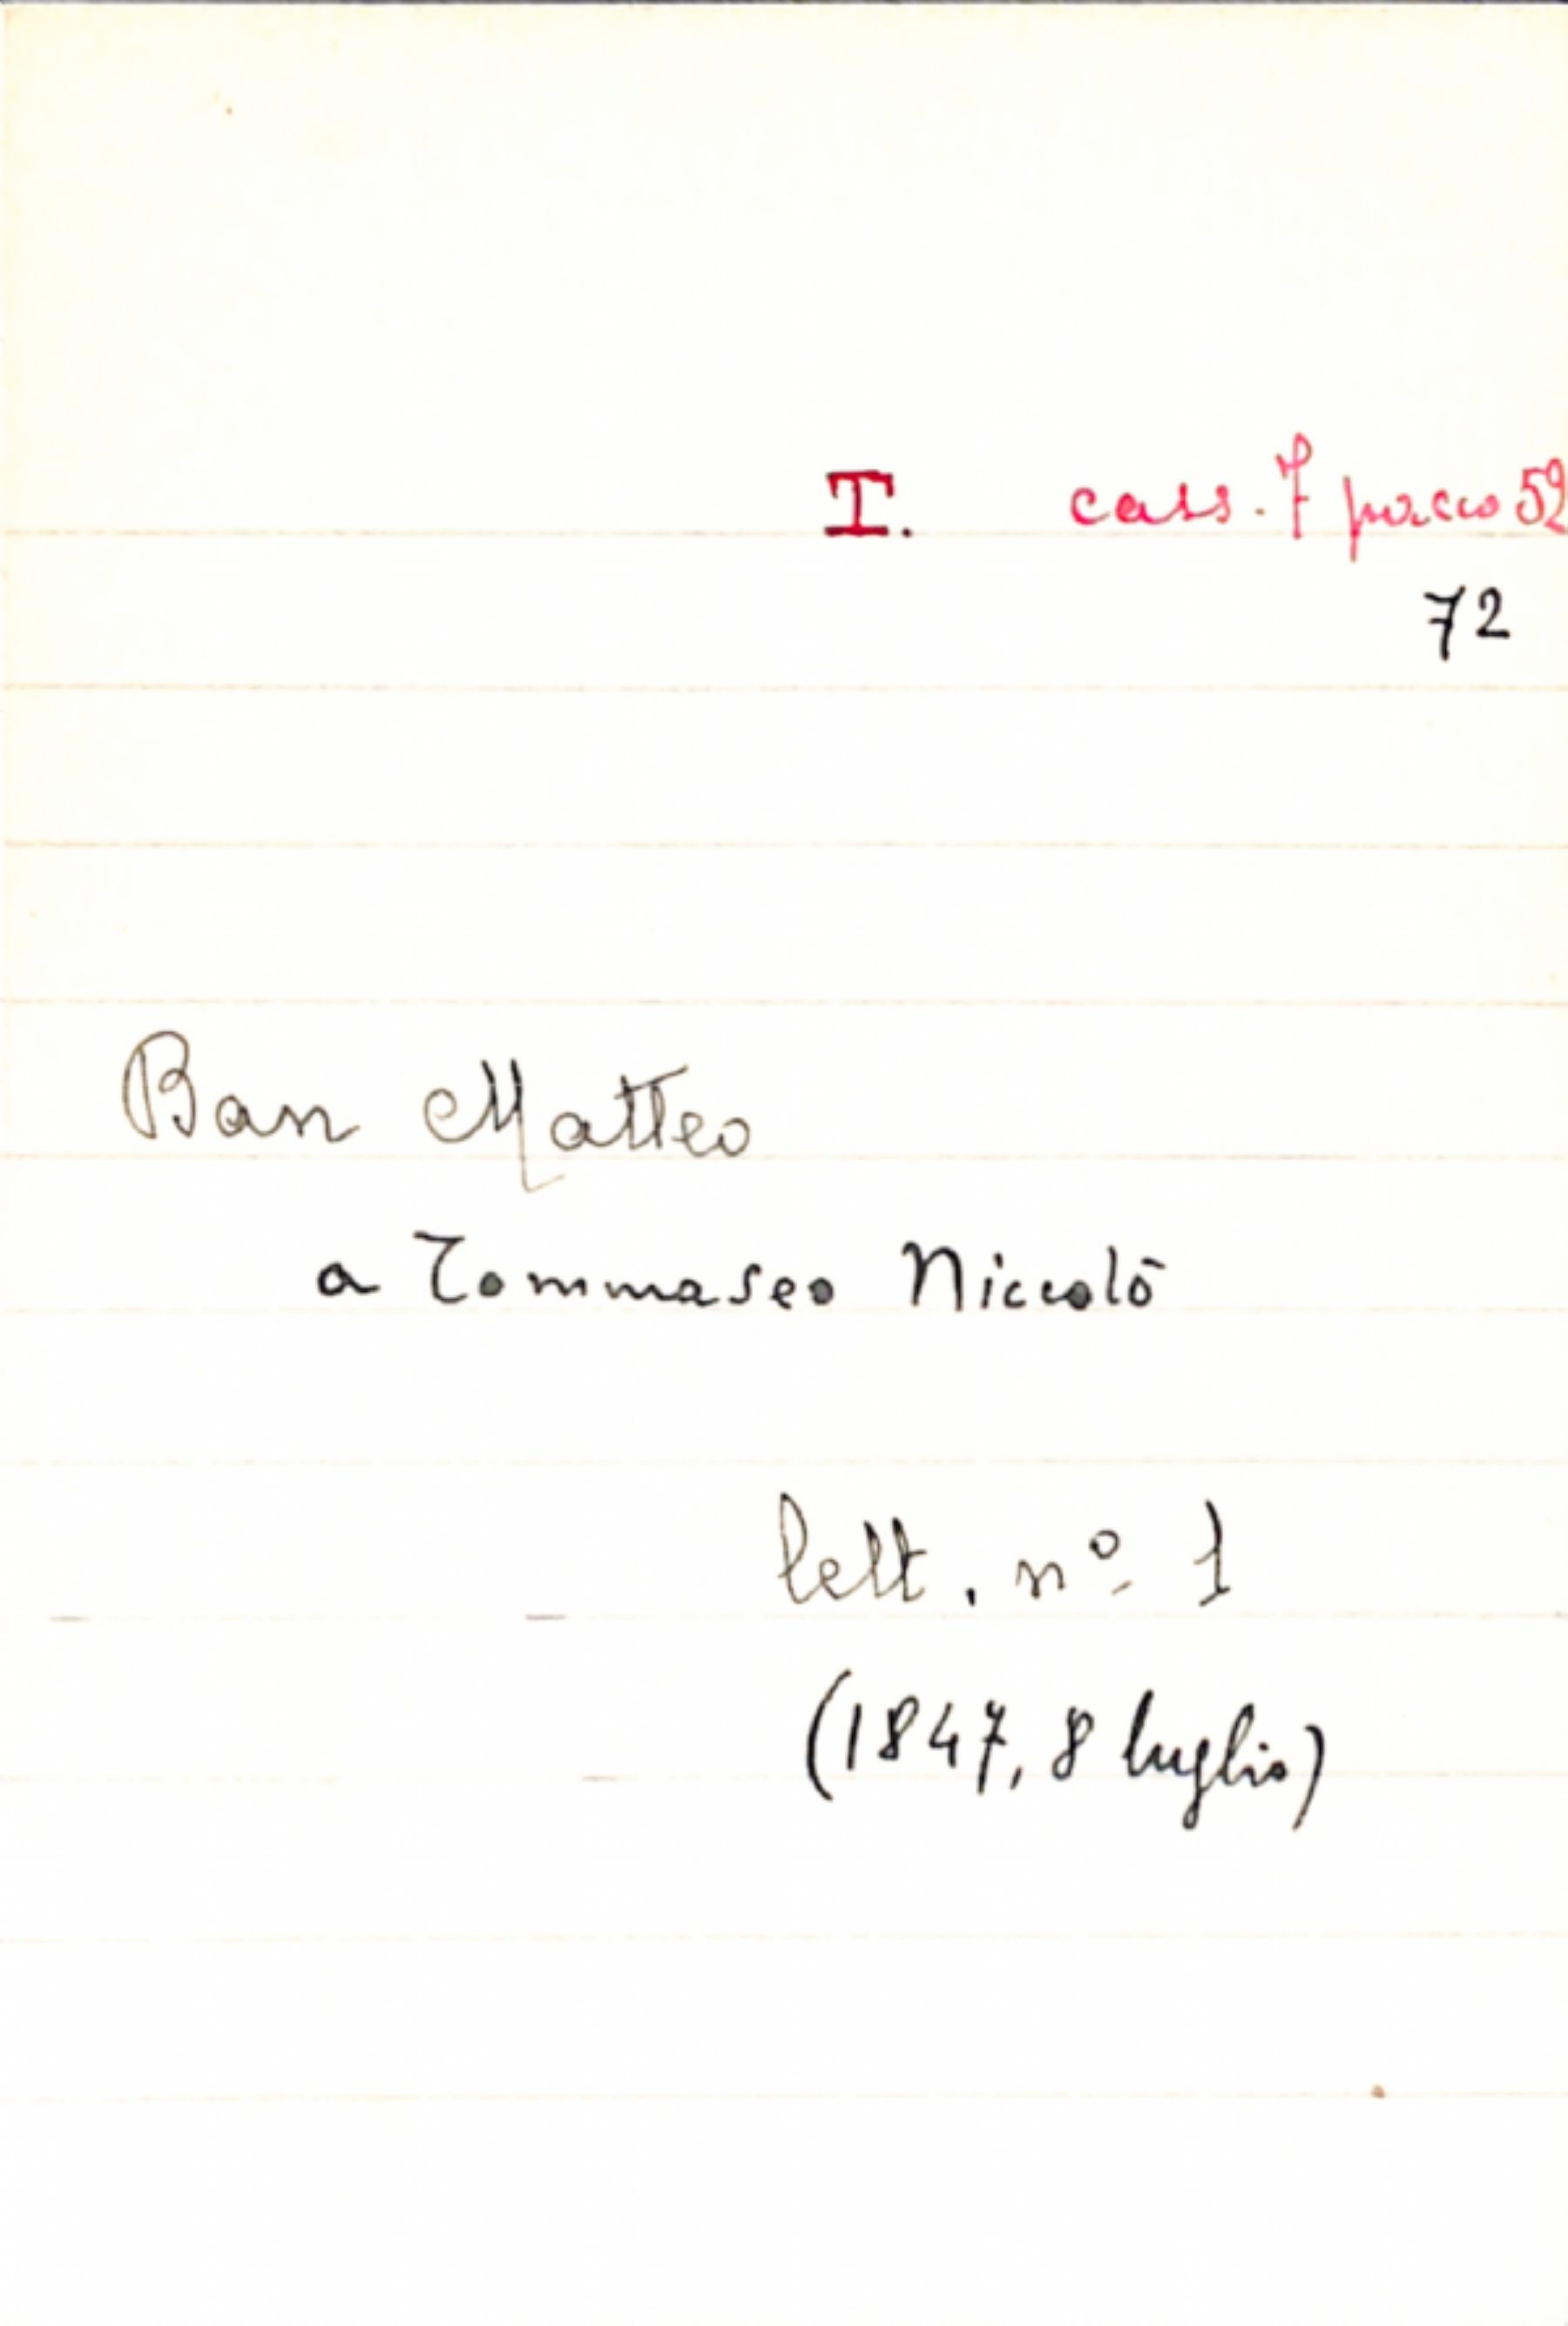 T. cass. 7 pacco 52
72
Ban Matteo
a Tommaseo Niccolò
lett. nº 1
(1847, 8 luglio)